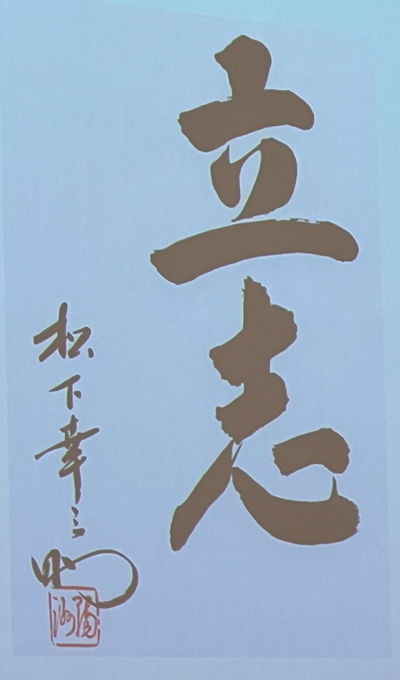 立志
松下幸之助